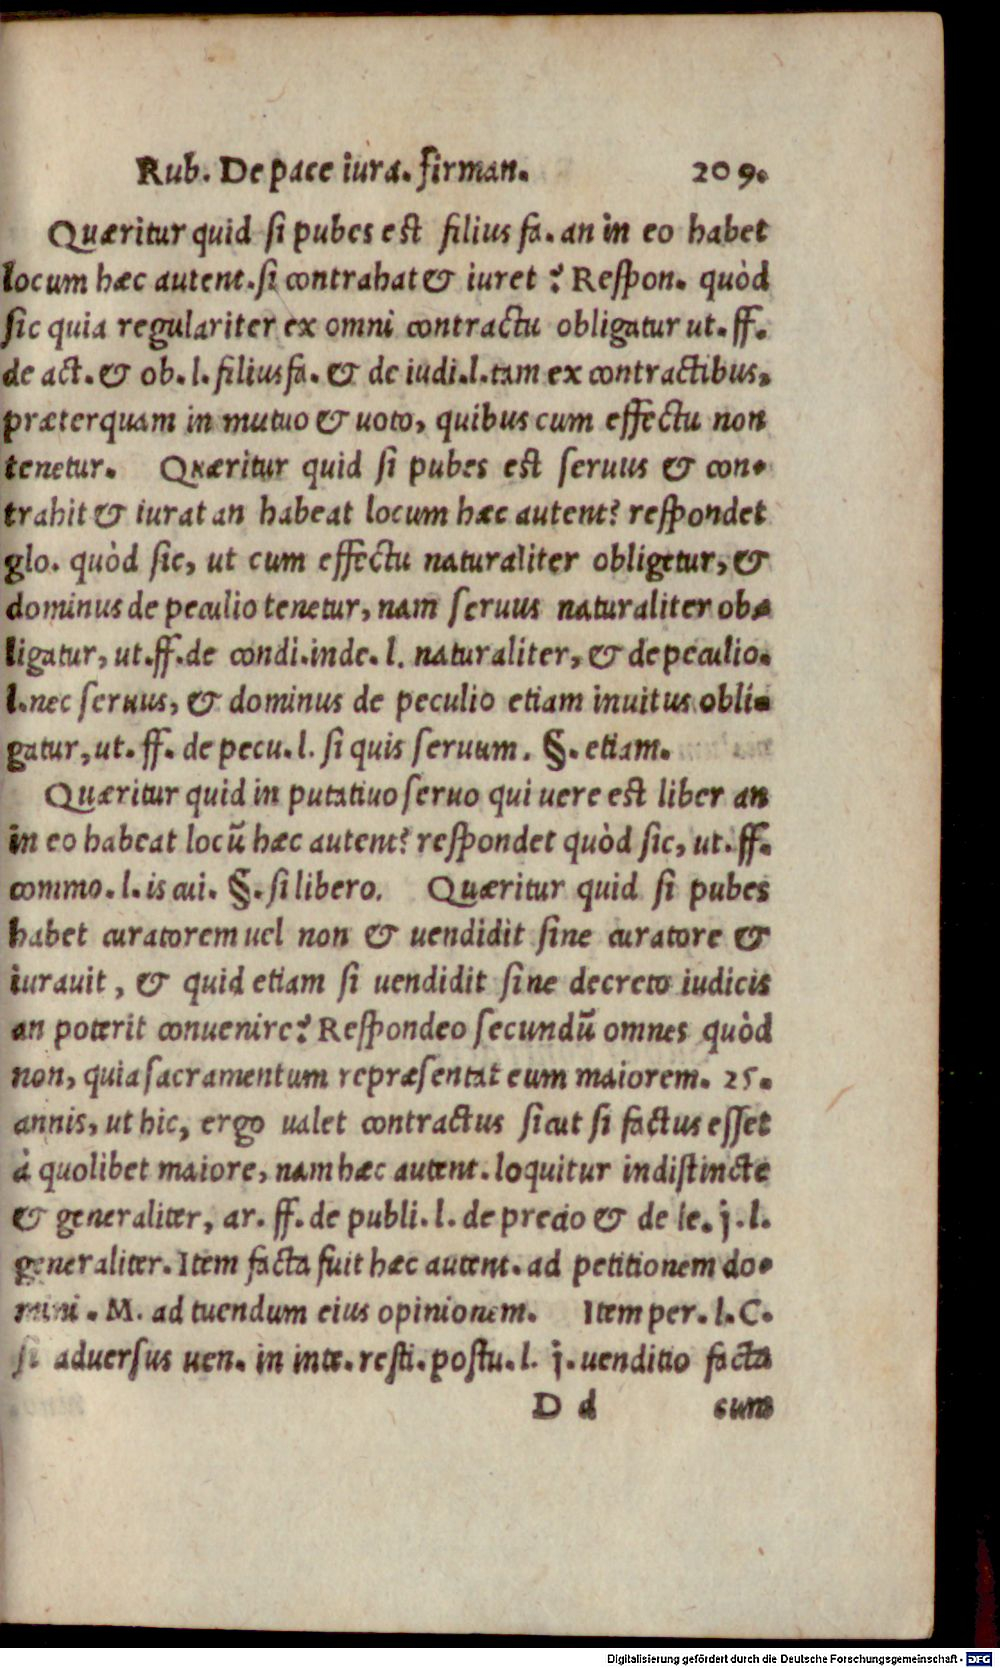 Rub. De pace iura. firman. 209.
Quæritur quid si pubes est filius fa. an in eo habet
locum hæc autent. si contrahat & iuret? Respon. quòd
sic quia regulariter ex omni contractu obligatur ut. ff.
de act. & ob. l. filiusfa. & de iudi. l. tam ex contractibus,
præterquam in mutuo & uoto, quibus cum effectu non
tenetur. Quæritur quid si pubes est seruus & con-
trahit & iurat an habeat locum hæc autent? respondet
glo. quòd sic, ut cum effectu naturaliter obligetur, &
dominus de peculio tenetur, nam seruus naturaliter ob-
ligatur, ut. ff. de condi. inde. l. naturaliter, & de peculio.
l. nec seruus, & dominus de peculio etiam inuitus obli-
gatur, ut. ff. de pecu. l. si quis seruum. §. etiam.
Quæritur quid in putatiuo seruo qui uere est liber an
in eo habeat locū hæc autent? respondet quòd sic, ut. ff.
commo. l. is cui. §. si libero. Quæritur quid si pubes
habet curatorem uel non & uendidit sine curatore &
iurauit, & quid etiam si uendidit sine decreto iudicis
an poterit conuenire? Respondeo secundū omnes quòd
non, quia sacramentum repræsentat eum maiorem. 25.
annis, ut hic, ergo ualet contractus sicut si factus esset
à quolibet maiore, nam hæc autent. loquitur indistincte
& generaliter, ar. ff. de publi. l. de precio & de le. j. l.
generaliter. Item facta fuit hæc autent. ad petitionem do-
mini. M. ad tuendum eius opinionem. Item per. l. C.
si aduersus uen. in inte. resti. postu. l. j. uenditio facta
D d cum
Digitalisierung gefördert durch die Deutsche Forschungsgemeinschaft - DFG